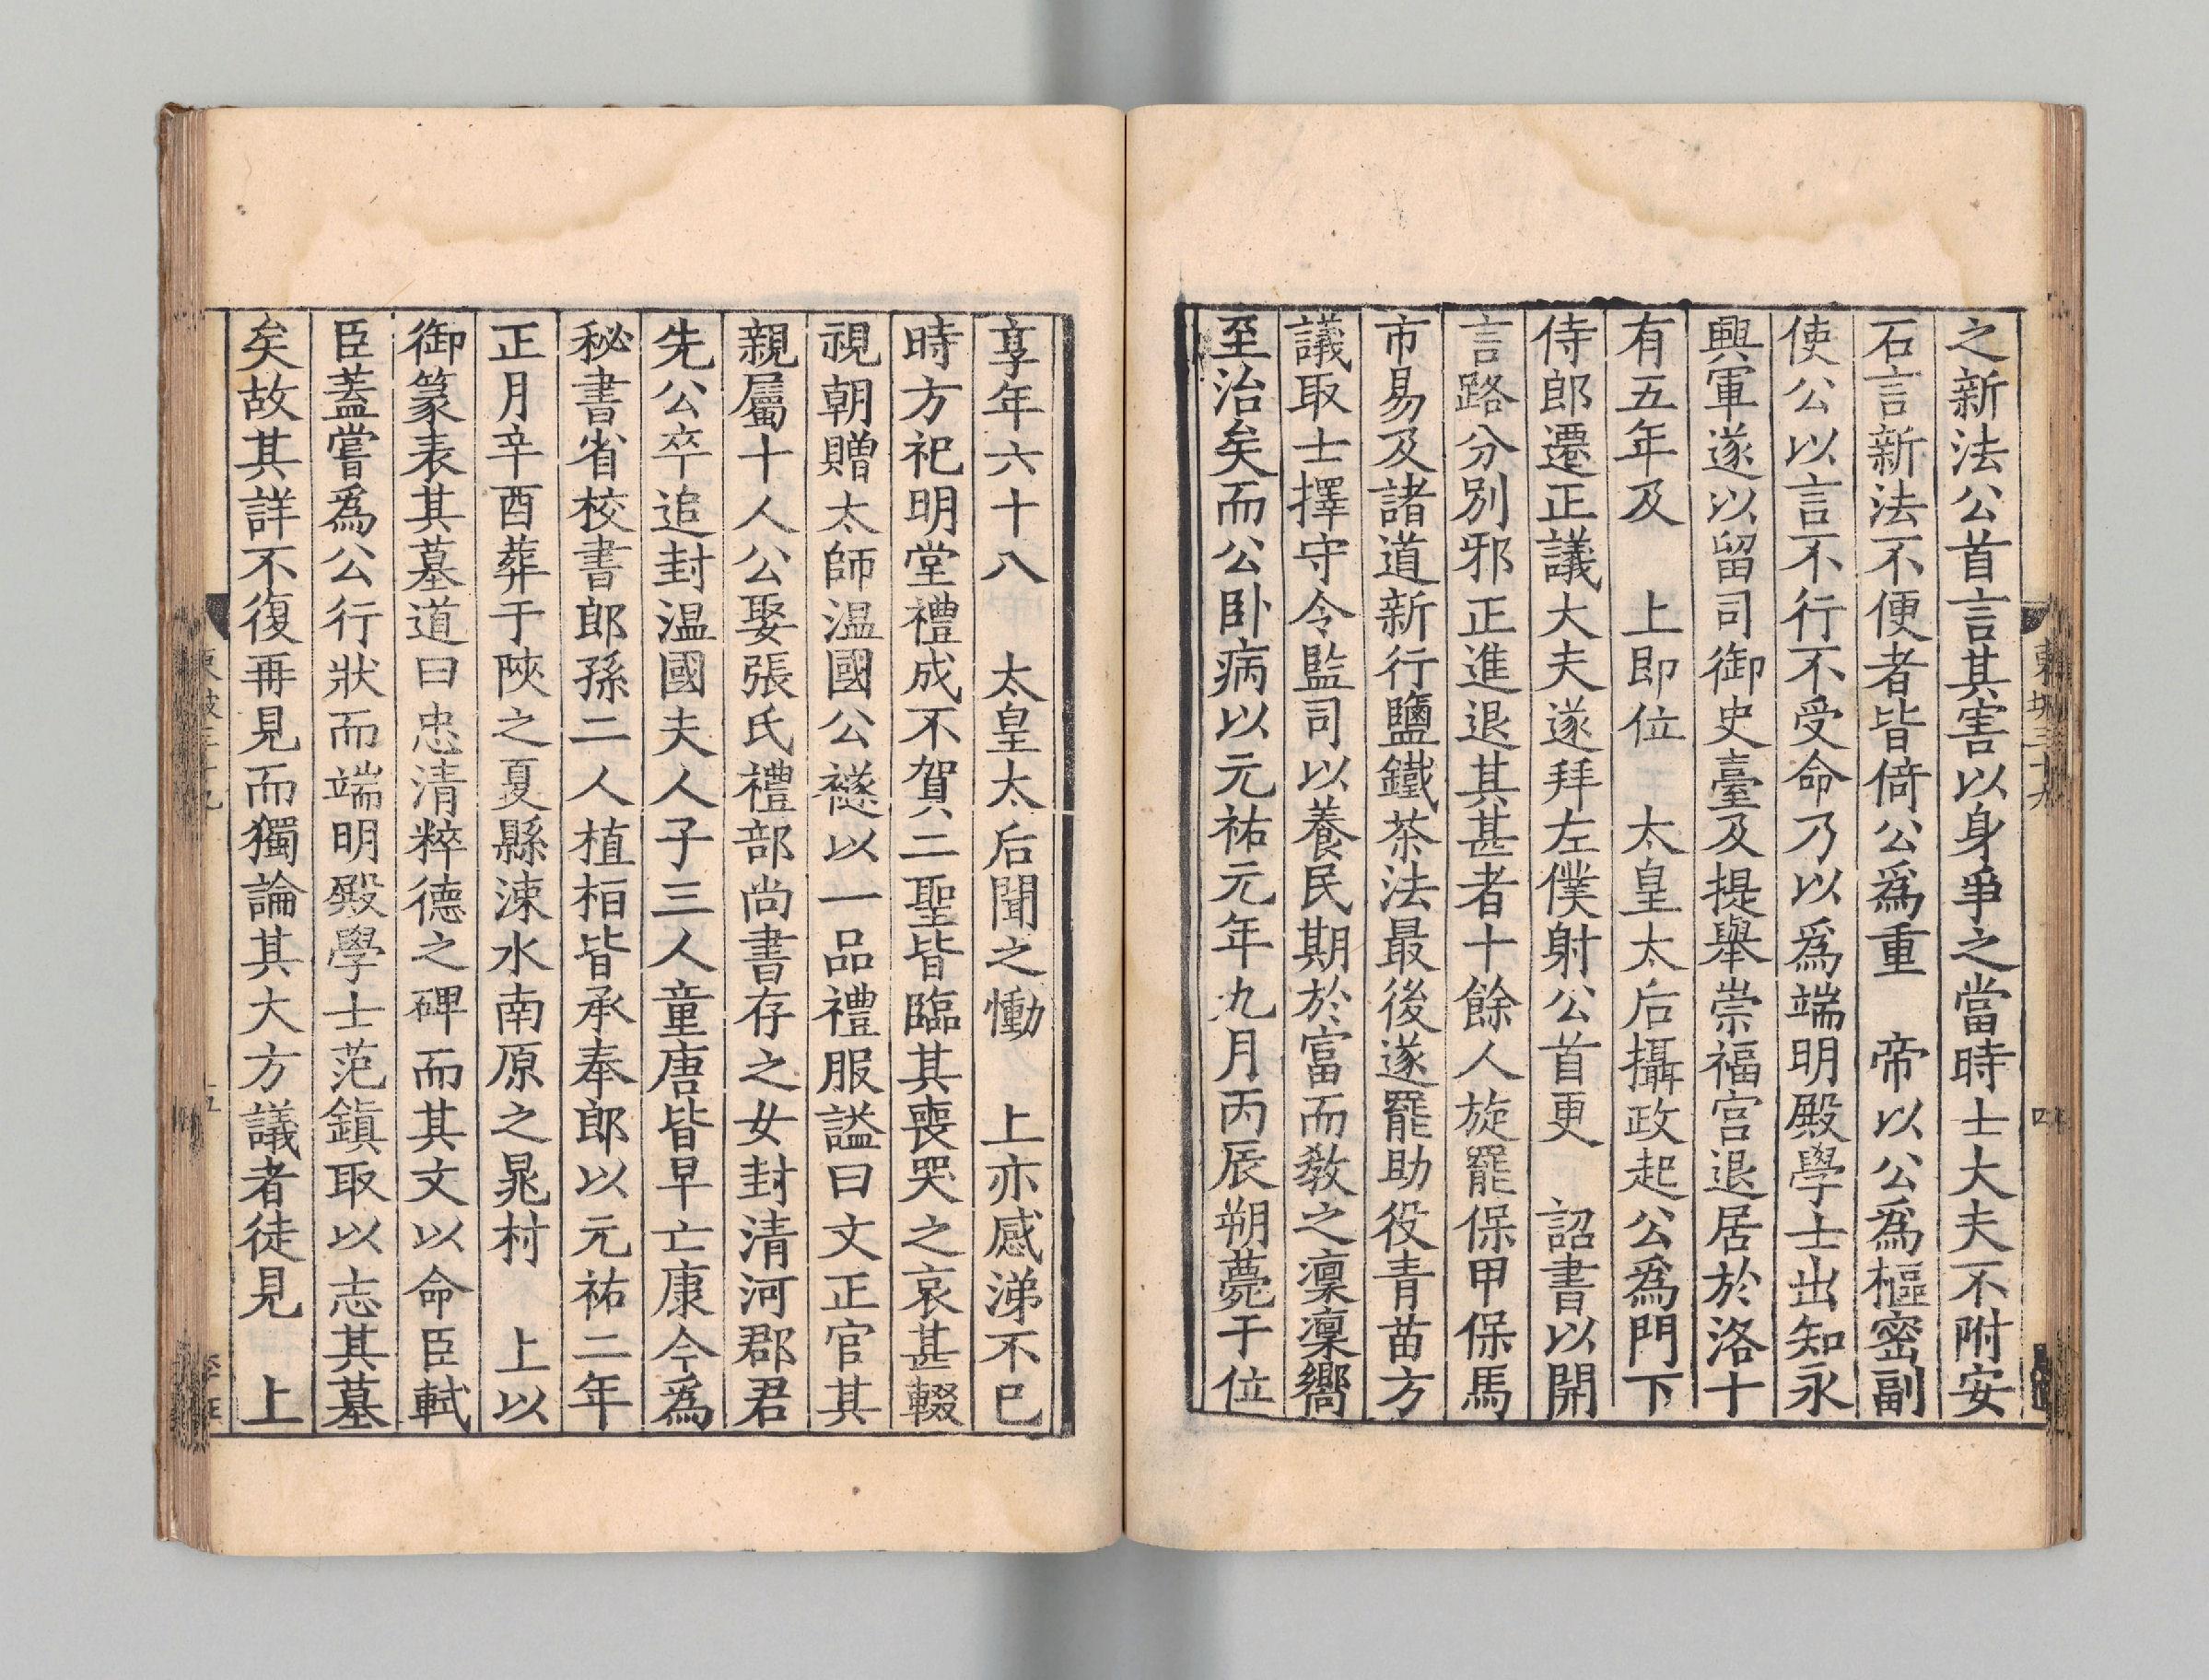 之新法公首言其害以身爭之當時士大夫不附安
石言新法不便者皆倚公爲重　帝以公爲樞密副
使公以言不行不受命乃以爲端明殿學士出知永
興軍遂以留司御史臺及提舉崇福宮退居於洛十
有五年及　上即位　太皇太后攝政起公爲門下
侍郎遷正議大夫遂拜左僕射公首更　詔書以開
言路分別邪正進退其甚者十餘人旋罷保甲保馬
市易及諸道新行鹽鐵茶法最後遂罷助役青苗方
議取士擇守令監司以養民期於富而教之凜凜嚮
至治矣而公臥病以元祐元年九月丙辰朔薨于位
享年六十八　太皇太后聞之慟　上亦感涕不已
時方祀明堂禮成不賀二聖皆臨其喪哭之哀甚輟
視朝贈太師溫國公襚以一品禮服謚曰文正官其
親屬十人公娶張氏禮部尚書存之女封清河郡君
先公卒追封溫國夫人子三人童唐皆早亡康今爲
秘書省校書郎孫二人植桓皆承奉郎以元祐二年
正月辛酉葬于陝之夏縣涑水南原之晁村　上以
御篆表其墓道曰忠清粹德之碑而其文以命臣軾
臣蓋嘗爲公行狀而端明殿學士范鎮取以志其墓
矣故其詳不復再見而獨論其大方議者徒見　上